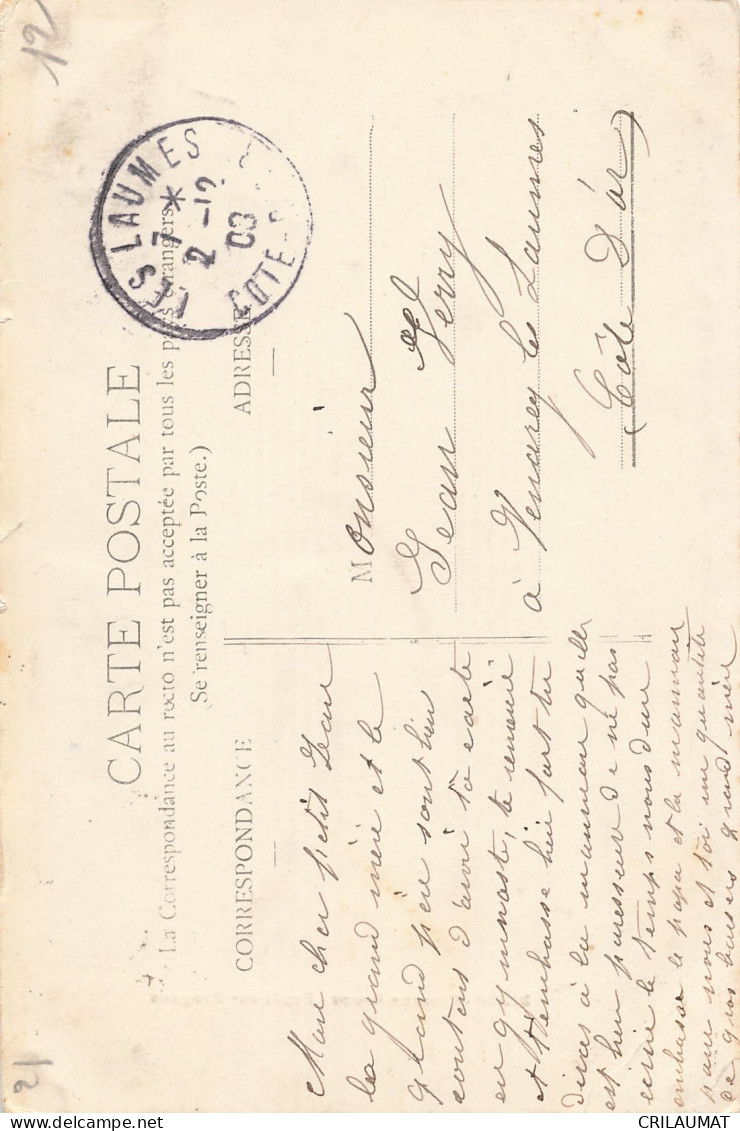 CARTE POSTALE
La Correspondance au recto n'est pas acceptée par tous les pays étrangers
Se renseigner à la Poste.)
CORRESPONDANCE
ADRESSE
LES LAUMES
7 *
2 - 12
08
COTE-
Mon cher petit Jean
la grand mère et le
grand père sont bien
contens d'avoir ta carte
en gymnaste, te remercie
et t'embasse bien fort tu
diras à la maman quelle
est bien paresseuse de ne pas
ecrire le temps nous dure
embasse le papa et la maman
pour nous et toi une quantité
de gros baisers grand mère
Monsieur
Jean Ferry
à Venarey les Laumes
Côte D'or
12
21
CRILAUMAT